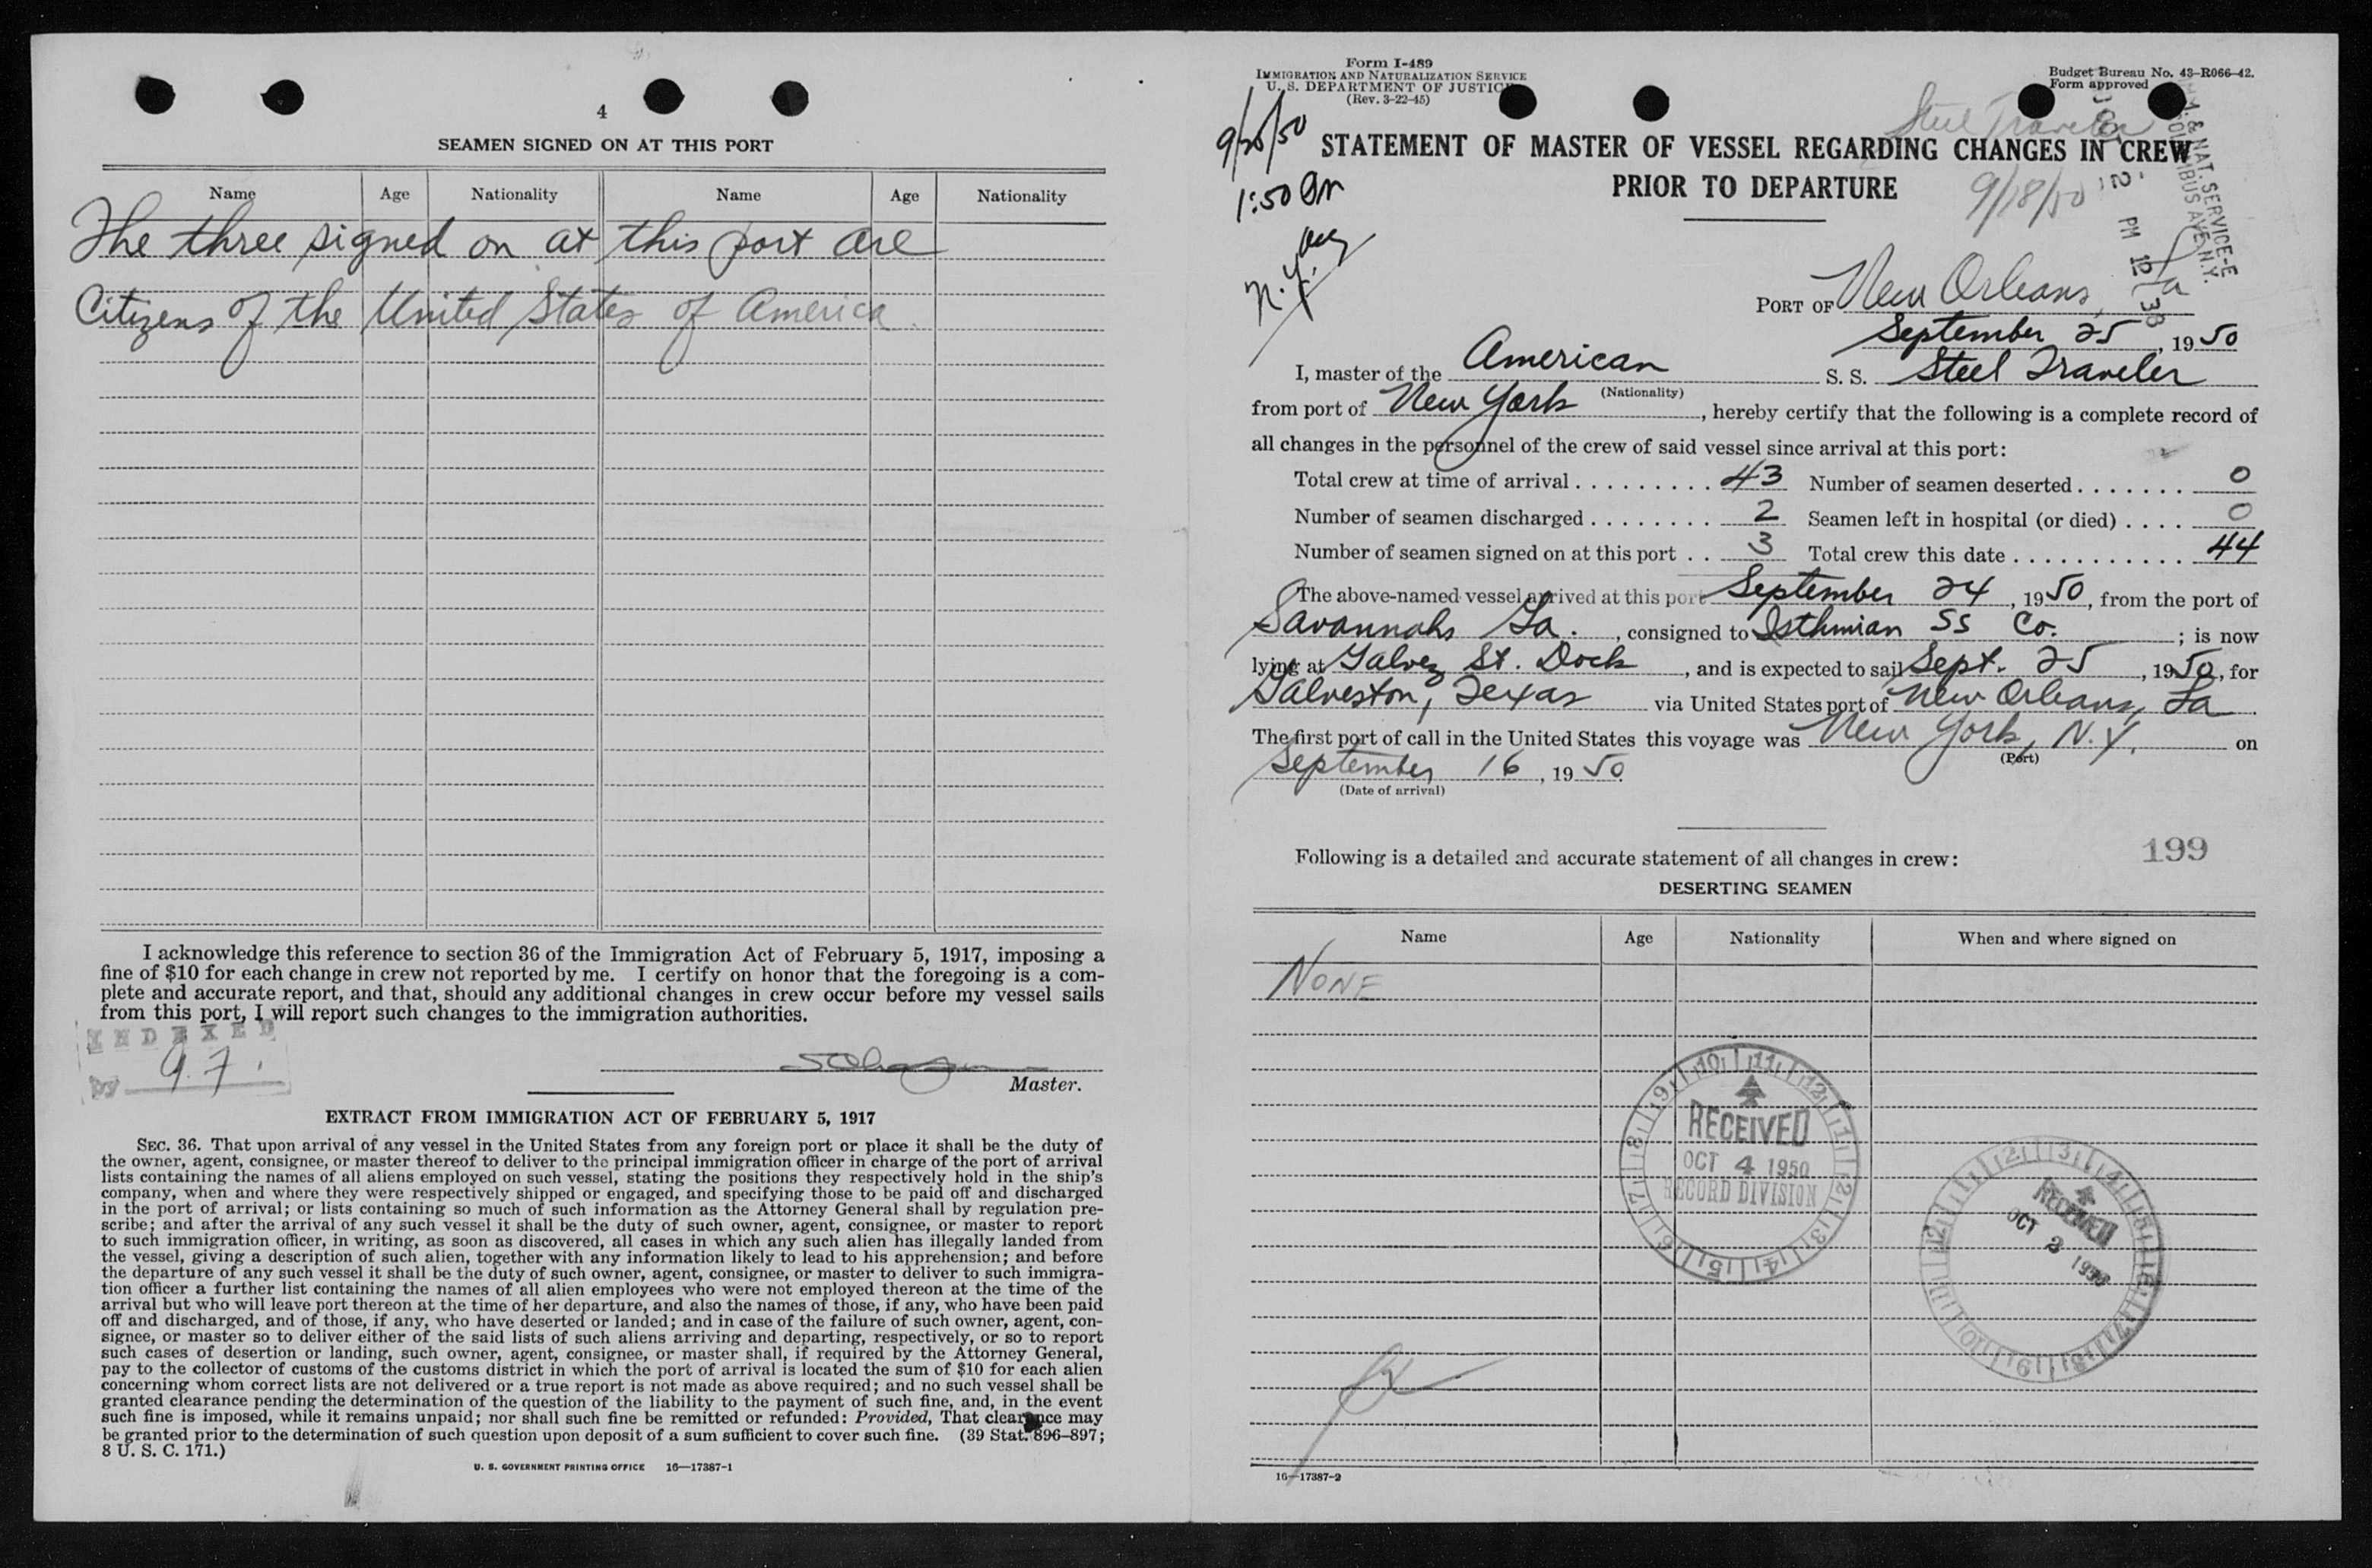 4
SEAMEN SIGNED ON AT THIS PORT
Name Age Nationality Name Age Nationality
The three signed on at this port are
Citizens of the United States of America.
I acknowledge this reference to section 36 of the Immigration Act of February 5, 1917, imposing a
fine of $10 for each change in crew not reported by me. I certify on honor that the foregoing is a com-
plete and accurate report, and that, should any additional changes in crew occur before my vessel sails
from this port, I will report such changes to the immigration authorities.
INDEXED
by
Master.
EXTRACT FROM IMMIGRATION ACT OF FEBRUARY 5, 1917
SEC. 36. That upon arrival of any vessel in the United States from any foreign port or place it shall be the duty of
the owner, agent, consignee, or master thereof to deliver to the principal immigration officer in charge of the port of arrival
lists containing the names of all aliens employed on such vessel, stating the positions they respectively hold in the ship's
company, when and where they were respectively shipped or engaged, and specifying those to be paid off and discharged
in the port of arrival; or lists containing so much of such information as the Attorney General shall by regulation pre-
scribe; and after the arrival of any such vessel it shall be the duty of such owner, agent, consignee, or master to report
to such immigration officer, in writing, as soon as discovered, all cases in which any such alien has illegally landed from
the vessel, giving a description of such alien, together with any information likely to lead to his apprehension; and before
the departure of any such vessel it shall be the duty of such owner, agent, consignee, or master to deliver to such immigra-
tion officer a further list containing the names of all alien employees who were not employed thereon at the time of the
arrival but who will leave port thereon at the time of her departure, and also the names of those, if any, who have been paid
off and discharged, and of those, if any, who have deserted or landed; and in case of the failure of such owner, agent, con-
signee, or master so to deliver either of the said lists of such aliens arriving and departing, respectively, or so to report
such cases of desertion or landing, such owner, agent, consignee, or master shall, if required by the Attorney General,
pay to the collector of customs of the customs district in which the port of arrival is located the sum of $10 for each alien
concerning whom correct lists are not delivered or a true report is not made as above required; and no such vessel shall be
granted clearance pending the determination of the question of the liability to the payment of such fine, and, in the event
such fine is imposed, while it remains unpaid; nor shall such fine be remitted or refunded: Provided, That clearance may
be granted prior to the determination of such question upon deposit of a sum sufficient to cover such fine. (39 Stat. 896–897;
8 U. S. C. 171.)
U. S. GOVERNMENT PRINTING OFFICE 16—17387-1
Form I-489
IMMIGRATION AND NATURALIZATION SERVICE
U. S. DEPARTMENT OF JUSTICE
(Rev. 3-22-45)
Budget Bureau No. 43-R066-42.
Form approved
Steel Traveler
STATEMENT OF MASTER OF VESSEL REGARDING CHANGES IN CREW
PRIOR TO DEPARTURE
1:50 Pm
9/18/50
N.Y.
PORT OF New Orleans, La
September 25, 1950
I, master of the American S. S. Steel Traveler
(Nationality)
from port of New York, hereby certify that the following is a complete record of
all changes in the personnel of the crew of said vessel since arrival at this port:
Total crew at time of arrival . . . . . . . . . 43 Number of seamen deserted . . . . . . . 0
Number of seamen discharged . . . . . . . . 2 Seamen left in hospital (or died) . . . . 0
Number of seamen signed on at this port . . 3 Total crew this date . . . . . . . . . . . . 44
The above-named vessel arrived at this port September 24, 1950, from the port of
Savannah Ga., consigned to Isthmian SS Co.; is now
lying at Galvez St. Dock, and is expected to sail Sept. 25, 1950, for
Galveston, Texas via United States port of New Orleans, La.
The first port of call in the United States this voyage was New York, N.Y. on
(Port)
September 16, 1950.
(Date of arrival)
199
Following is a detailed and accurate statement of all changes in crew:
DESERTING SEAMEN
Name Age Nationality When and where signed on
NONE
RECEIVED
OCT 4 1950
RECORD DIVISION
RECEIVED
OCT
16—17387-2